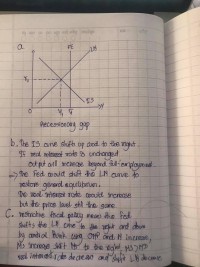 a.
r
FE
LM
r₁
IS
0
Y₁ Y
Y
Recessionary gap
b. The IS curve shift up and to the right.
If real interest rate is unchanged
output will increase beyond full-employment
=> the Fed could shift the LM curve to
restore general equilibrium.
The real interest rate would increase
but the price level still the same.
C. restrictive fiscal policy mean the Fed
shifts the LM curve to the right and down
by control that
Ms increase shift to the right,
real interest rate decrease and shift LM down